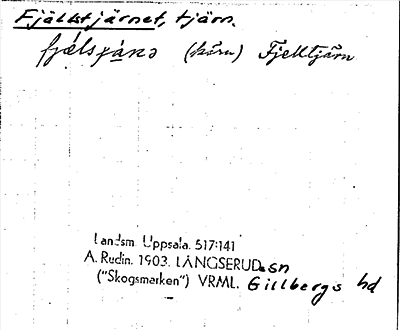 Fjällstjärnet, tjärn.
(skörn) Fjelltjärn
Landsm. Uppsala. 517:141
A. Rudin. 1903. LÅNGSERUD sn
("Skogsmarken") VRML. Gillbergs hd